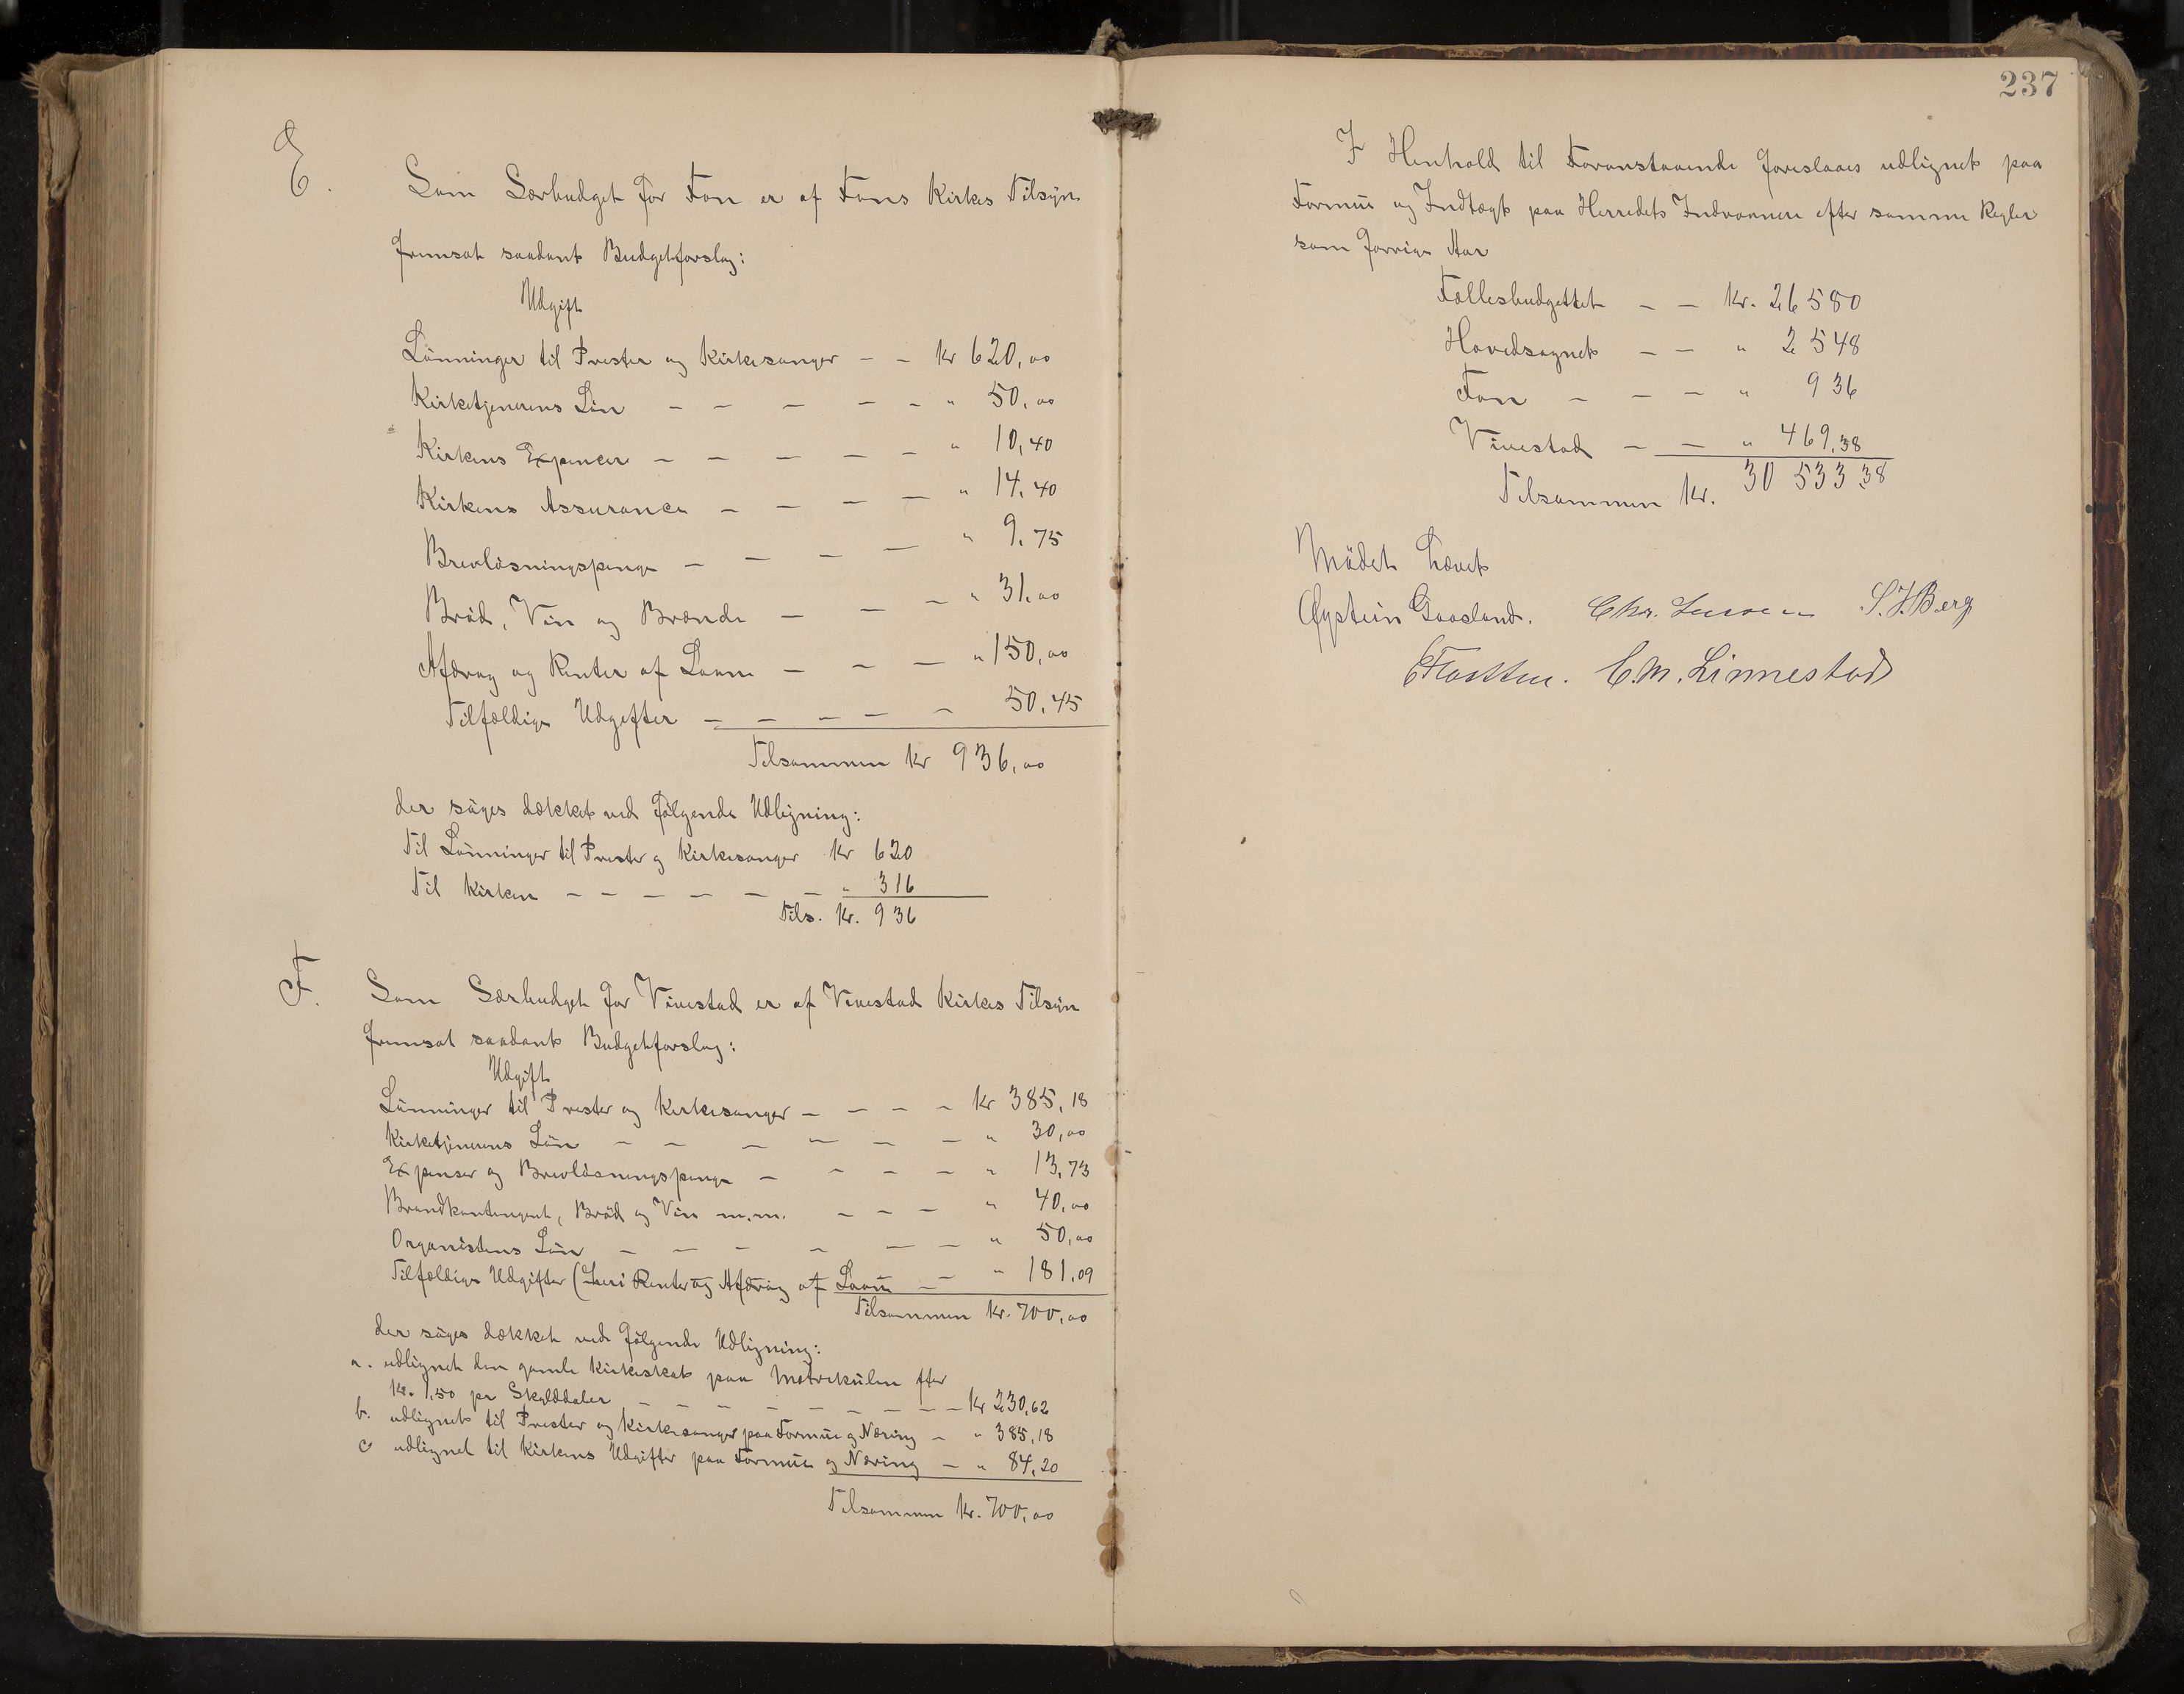 E.
Som Særbudget for Fon er af Fons Kirkes Tilsyn
fremsat saadant Budgetforslag:
Udgift
Lönninger til Prester og Kirkesanger – – kr 620,00
Kirketjenerens Lön – – – – – " 50,00
Kirkens Expencer – – – – – " 10,40
Kirkens Assurance – – – – " 14,40
Brevlösningspenge – – – – " 9,75
Bröd, Vin og Brænde – – – " 31,00
Afdrag og Renter af Laane – – – " 150,00
Tilfældige Udgifter – – – – – 50,45
Tilsammen kr 936,00
der söges dækket ved følgende Udligning:
Til Lönninger til Prester og Kirkesanger kr 620
Til Kirken – – – – – – " 316
Tils. kr. 936
F.
Som Særbudget for Vivestad er af Vivestad Kirkes Tilsyn
fremsat saadant Budgetforslag:
Udgift
Lönninger til Prester og Kirkesanger – – – – kr 385,18
Kirketjenerens Lön – – – – – – " 30,00
Expenser og Brevlösningspenge – – – – " 13,73
Brandkontingent, Bröd og Vin m.m. – – – " 40,00
Organistens Lön – – – – – – " 50,00
Tilfældige Udgifter (heri Renter og Afdrag af Laan – – " 181,09
Tilsammen kr. 700,00
der söges dækket ved følgende Udligning:
a. udlignet den gamle Kirkeskat paa Matrikulen efter
kr. 1,50 pr Skylddaler – – – – – – – – kr 230,62
b. udlignet til Prester og Kirkesanger paa Formue og Næring – " 385,18
c udlignet til Kirkens Udgifter paa Formue og Næring – " 84,20
Tilsammen kr. 700,00
237
I Henhold til Foranstaaende foreslaaes udlignet paa
Formue og Indtægt paa Herredets Indvaanere efter samme Regler
som forrige Aar
Fællesbudgettet – – kr. 26580
Hovedsognet – – " 2548
Fon – – – " 936
Vivestad – – " 469,38
Tilsammen kr. 30 533 38
Mödet hævet
Øystein Gaasland. Chr. S.J.Berg
C.M. Linnestad